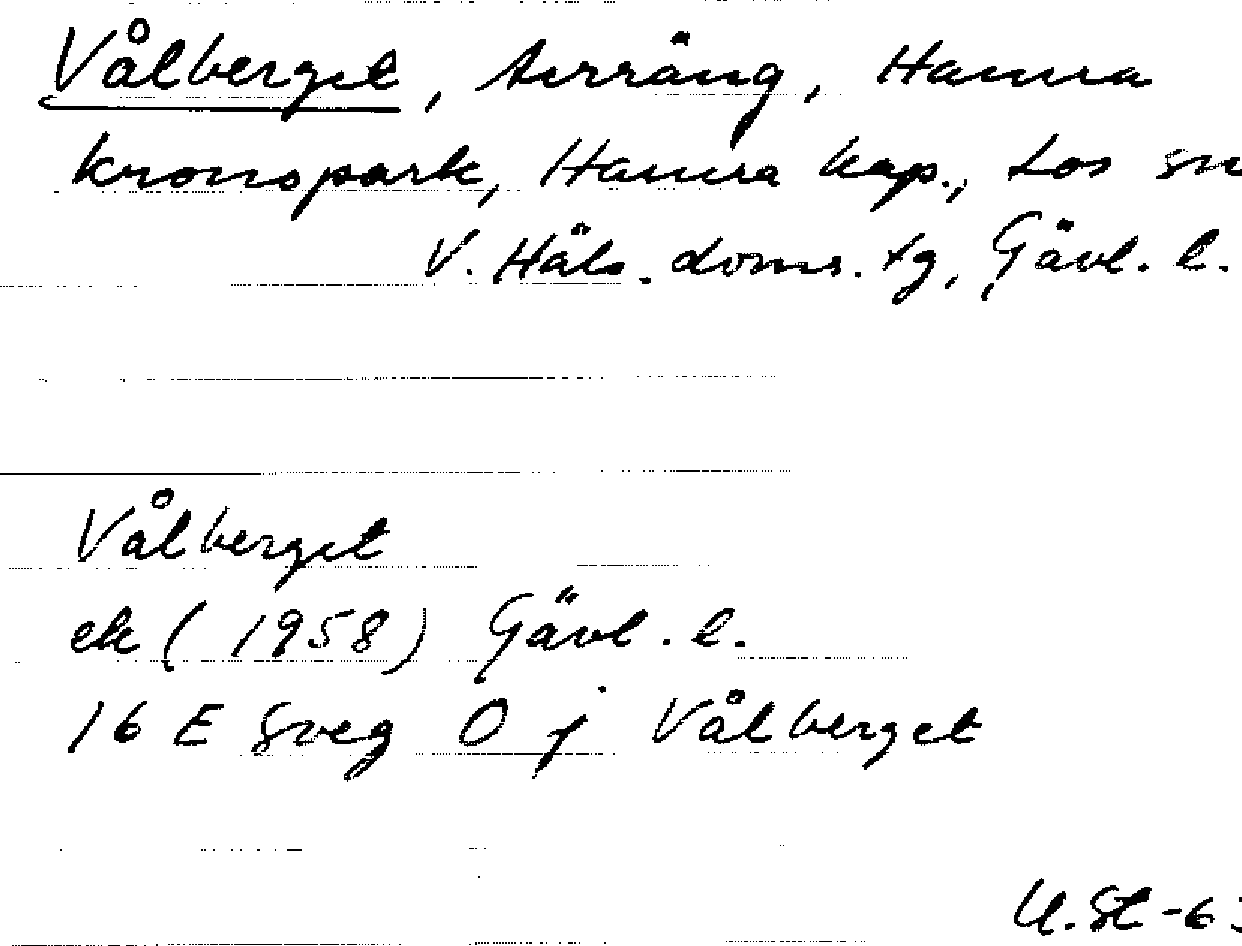 Vålberget, terräng, Hamra
kronopark, Hamra kap., Los sn
V. Häls. doms. tg, Gävl. l.
Vålberget
ek (1958) Gävl. l.
16 E Sveg 0 j Vålberget
U. St -63